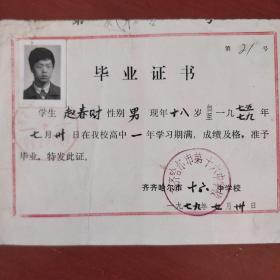 第 21 号
毕业证书
学生 赵春时 性别 男 现年十八岁 自至 一九七五七九年
七月卅日在我校高中一年学习期满，成绩及格，准予
毕业。特发此证。
齐齐哈尔市十六中学校
一九七九年七月卅日